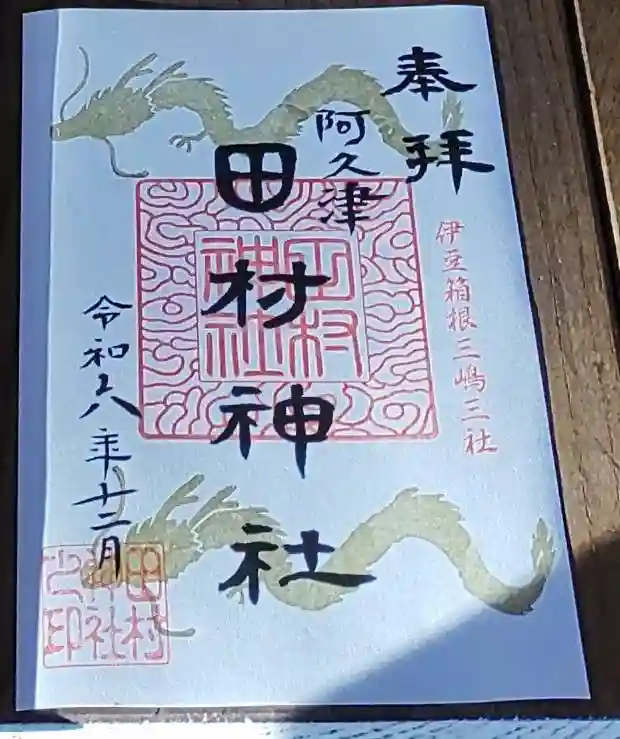 奉拝
伊豆箱根三嶋三社
阿久津
田村神社
田村神社
令和六年十二月
田村神社之印